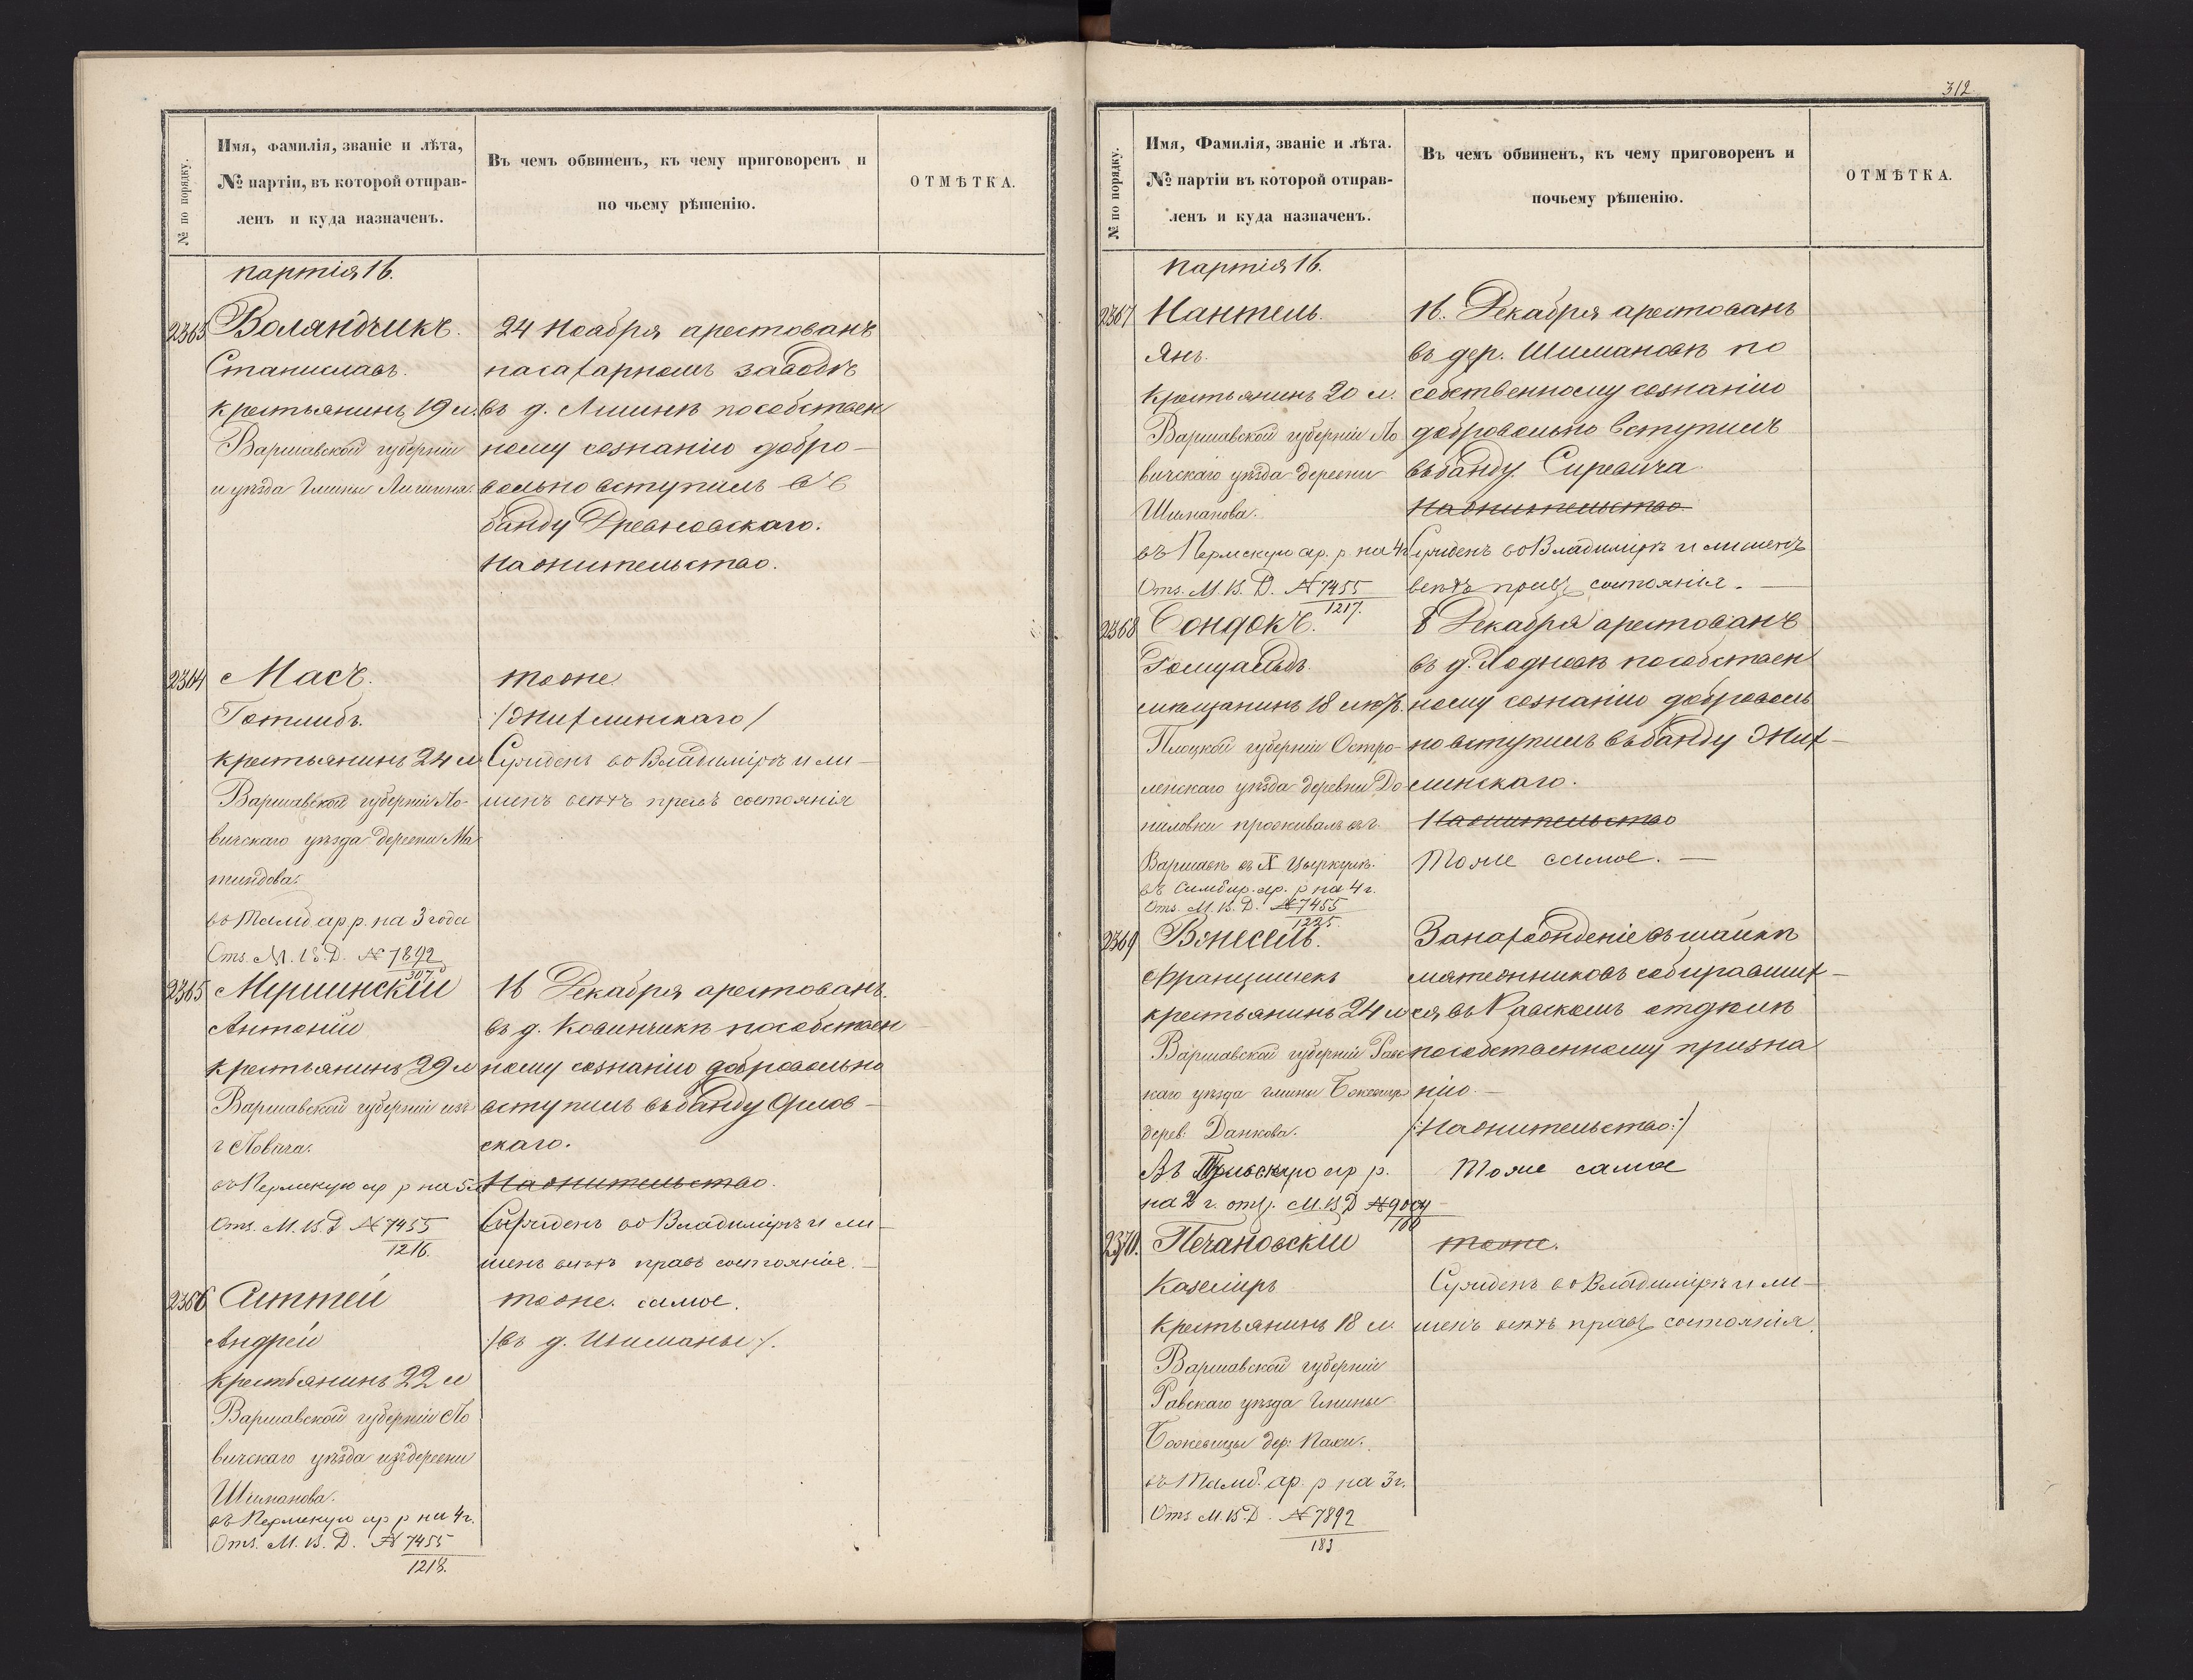 № по порядку.
Имя, фамилія, званіе и лѣта,
№ партіи, въ которой отправ-
ленъ и куда назначенъ.
Въ чемъ обвиненъ, къ чему приговоренъ и
по чьему рѣшенію.
ОТМѢТКА.
партія 16.
Воляндчикъ.
Станиславъ.
крестьянинъ 19 л.
Варшавской губерніи
и уѣзда Гмины
24 Ноября арестованъ
на сахарномъ заводѣ
въ д. по собствен
ному сознанію добро-
вольно вступилъ въ
банду Древновскаго.
На жительство.
2364
Масъ.
Готлибъ.
крестьянинъ 24 л
Варшавской губерніи Ло-
вичскаго уѣзда деревни Ма
тиндова.
въ Тамб. ар. р. на 3 года
Отз. М. В. Д. № 7892
307
тоже.
/Жихлинскаго/
Сужденъ во Владимірѣ и ли-
шенъ всѣхъ правъ состоянія
2365
Мершинскій
Антоній
крестьянинъ 29 л
Варшавской губерніи изъ
г Ловича.
въ Пермскую ар р на 5
Отз. М. В. Д № 7455
1216.
16 Декабря арестованъ.
въ д. по собствен
ному сознанію добровольно
вступилъ въ банду Орлов-
скаго.
На жительство.
Сужденъ во Владимірѣ и ли-
шенъ всѣхъ правъ состоянія.
2366
Андрей
крестьянинъ 22 л
Варшавской губерніи Ло
вичскаго уѣзда изъ деревни
Шиманова.
въ Пермскую ар р на 4 г.
Отз. М. В. Д. № 7455
1218.
тоже. самое.
/въ д. Шиманы/.
312
№ по порядку.
Имя, Фамилія, званіе и лѣта.
№ партіи въ которой отправ-
ленъ и куда назначенъ.
Въ чемъ обвиненъ, къ чему приговоренъ и
почьему рѣшенію.
ОТМѢТКА.
партія 16.
2367
Нантель.
Янъ.
крестьянинъ 20 л.
Варшавской губерніи Ло
вичскаго уѣзда деревни
Шиманова.
въ Пермскую ар. р. на 4 г
Отз. М. В. Д. № 7455
1217.
16. Декабря арестованъ
въ дер. Шимановѣ по
собственному сознанію
добровольно вступилъ
въ банду. Сиревича.
На жительство
Сужденъ во Владимірѣ и лишенъ
всѣхъ правъ состоянія.
2368
Сондокъ.
Ромуальдъ.
мѣщанинъ 18 лѣтъ.
Плоцкой губерніи Остро-
ленскаго уѣзда деревни До
ниловки проживалъ въ г.
Варшавѣ въ X Цыркулѣ.
въ Симбир. ар. р на 4 г.
Отз. М. В. Д. № 7455
1225.
8 Декабря арестованъ
въ д. по собствен
ному сознанію доброволь
но вступилъ въ банду Жих-
линскаго.
На жительство
Тоже самое.
2369
Вэнсель.
Францишекъ
крестьянинъ 24 л
Варшавской губерніи Равс
каго уѣзда гмины
дерев: Данкова.
ар р.
на 2 г. отз. М. В. Д
За нахожденіе въ шайкѣ
мятежниковъ собиравших-
ся въ Равскомъ отдѣлѣ
по собственному призна
нію.
/:На жительство:/
Тоже самое
2370.
Печановскій
Каземіръ
крестьянинъ 18 л.
Варшавской губерніи
Равскаго уѣзда Гмины
дер:
въ Тамб. ар. р на 3 г.
Отз М. В. Д. № 7892
183
тоже.
Сужденъ во Владимірѣ и ли-
шенъ всѣхъ правъ состоянія.